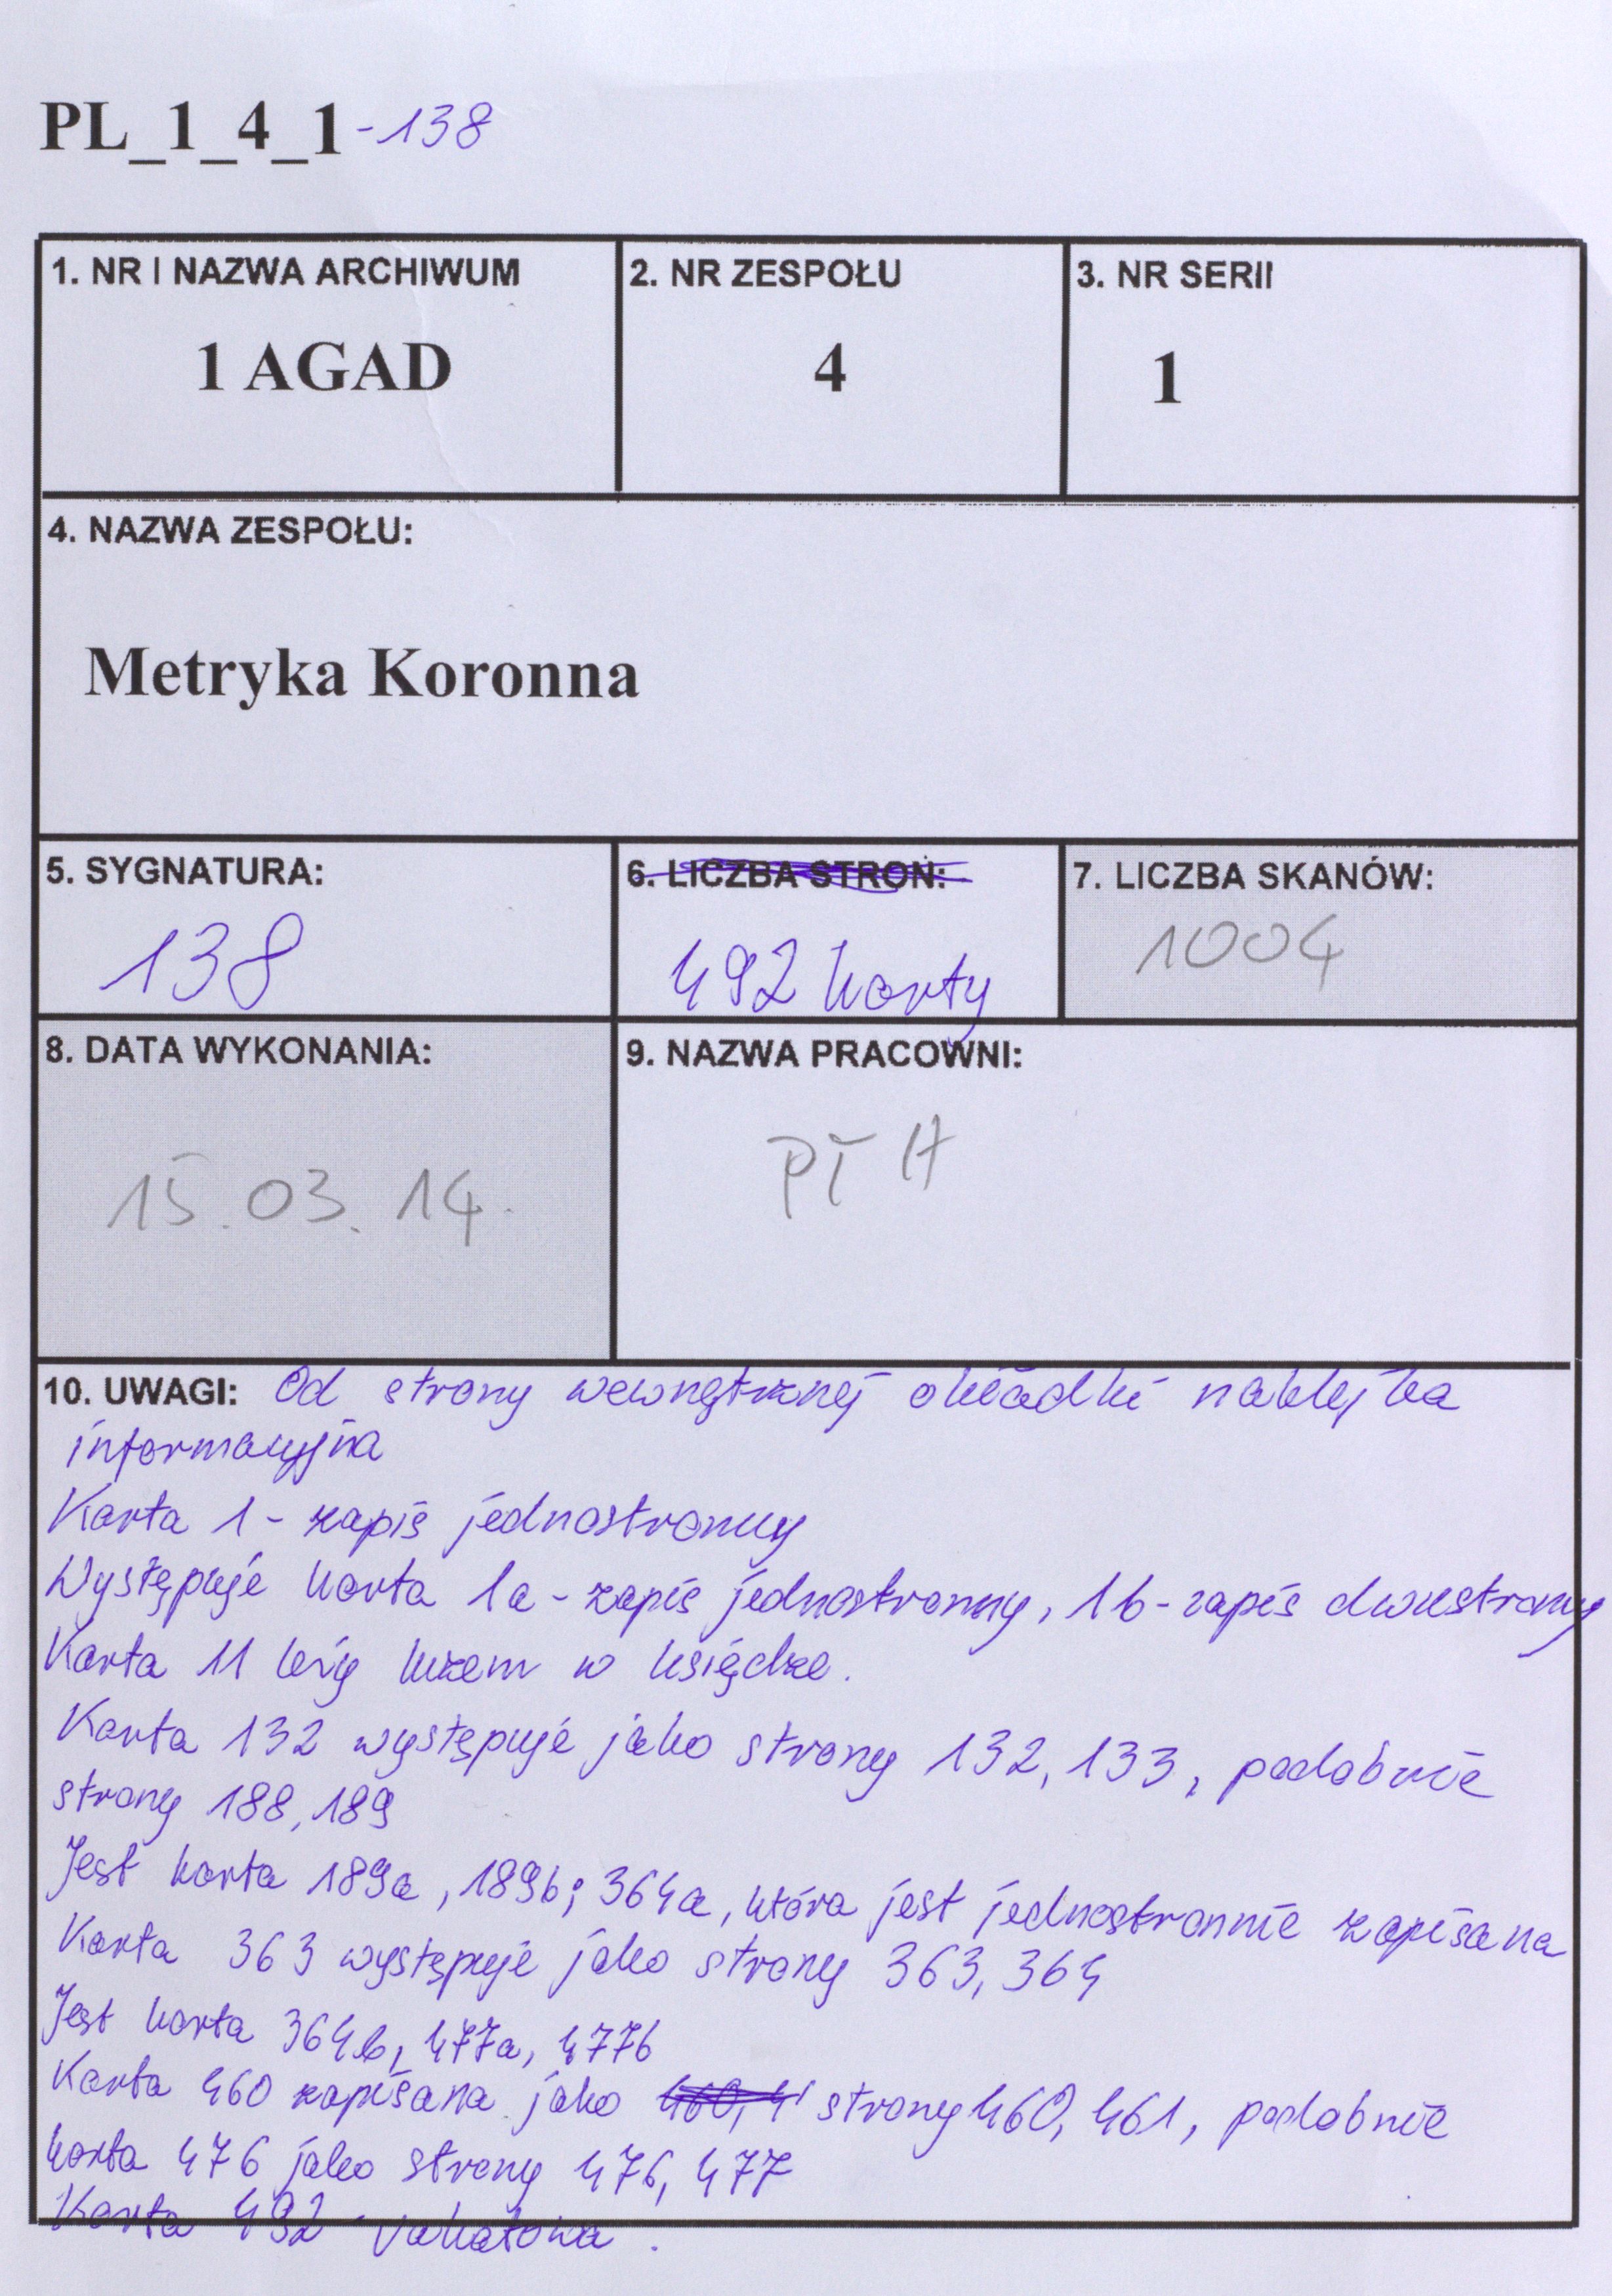 PL_1_4_1-138
1. NR I NAZWA ARCHIWUM
1 AGAD
2. NR ZESPOŁU
4
3. NR SERII
1
4. NAZWA ZESPOŁU:
Metryka Koronna
5. SYGNATURA:
138
6. LICZBA STRON:
492 karty
7. LICZBA SKANÓW:
1004
8. DATA WYKONANIA:
15.03.14.
9. NAZWA PRACOWNI:
PTH
10. UWAGI: Od strony wewnętrznej okładki naklejka
informacyjna
Karta 1 - zapis jednostronny
Występuje karta 1a - zapis jednostronny, 1b - zapis dwustronny
Karta 11 leży luzem w księdze.
Karta 132 występuje jako strony 132, 133, podobnie
strony 188, 189
Jest karta 189a, 189b; 364a, która jest jednostronnie zapisana
Karta 363 występuje jako strony 363, 364
Jest karta 364b, 477a, 477b
Karta 460 zapisana jako 460, 4 strony 460, 461, podobnie
karta 476 jako strony 476, 477
Karta 492 vakatowa.